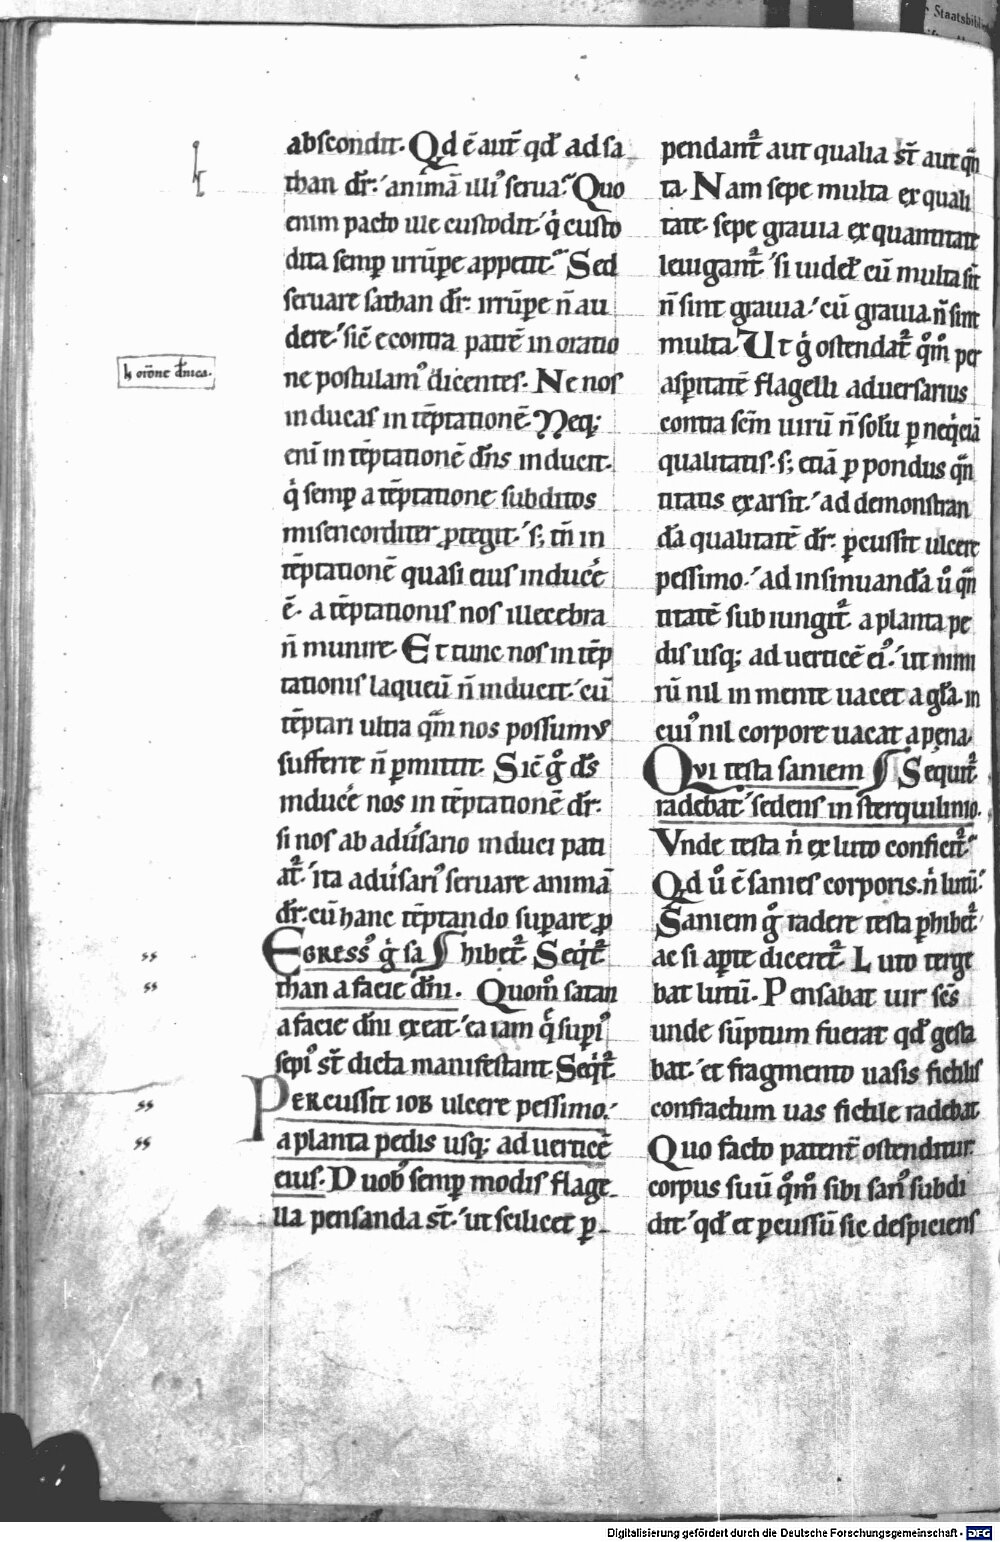 Staatsbibl
abscondit. Qd ē aut̄ qd̄ ad sa
than dr̄. animā illiꝰ serua. Quo
enim pacto ille custodit qͥ custo
dita semꝑ irrūꝑe appetit. Sed
seruare sathan dr̄. irrūꝑe n̄ au
dere. sic̄ econtra patrē in oratio
ne postulamꝰ dicentes. Ne nos
inducas in tēptationē. Neq;
eni̅ in tēptationē dn̄s inducit.
qͥ semꝑ a tēptatione subditos
misericorditer ꝓtegit. s; tn̄ in
tēptationē quasi eius induce̅
ē. a tēptationis nos illecebra
n̄ munire. Et tunc nos in tēp
tationis laqueū n̄ inducit. cū
tēptari ultra qᵃm nos possumus
sufferre n̄ ꝑmittit. Sic̄ gͦ ds̄
induce̅ nos in tēptationē dr̄.
si nos ab adūsario induci pati
at᷑. ita adūsariꝰ seruare animā
dr̄. cū hanc tēptando suꝑare ꝓ
EGRESSꝰ gͥ sa hibet᷑. Seqͥt᷑
than a facie dn̄i. Quom̄ satan
a facie dn̄i exeat. ea iam q̄ suꝑiꝰ
sepiꝰ st̄ dicta manifestant. Seqͥt᷑
PERcussit IOB ulcere pessimo.
a planta pedis usq; ad uerticē
eius. Duobꝰ semꝑ modis flage
lla pensanda st̄. ut scilicet ꝑ
h̵ orōne dn̄ica.
pendant᷑ aut qualia st̄ aut qn̄
ta. Nam sepe multa ex quali
tate. sepe grauia ex quantitate
leuigant᷑. si uidel̄ cū multa st̄
n̄ sint grauia. cū grauia n̄ sint
multa. Ut gͥ ostendat᷑ qͦm̄ per
asꝑitatē flagelli aduersarius
contra sc̄m uirū n̄ solū ꝑ neqͥciā
qualitatis. s; etiā ꝑ pondus qn̄
titatis exarsit. ad demonstran
dā qualitatē dr̄. ꝑcussit ulcere
pessimo. ad insinuandā ūͦ qn̄
titatē subiungit᷑. a planta pe
dis usq; ad uerticē eiꝰ. ut nimi
rū nil in mente uacet a gl̄a. in
cuiꝰ nil corpore uacat a pena.
QVI testa saniem Sequit᷑
radebat sedens in sterquilinio.
Vnde testa n̄ ex luto conficit᷑.
Qd ūͦ ē sanies corporis. n̄ lutū.
Saniem gͦ radere testa ꝑhibet᷑.
ac si aꝑte diceret᷑. Luto terge
bat lutū. Pensabat uir sc̄s
unde sūptum fuerat qd̄ gesta
bat. et fragmento uasis fictilis
confractum uas fictile radebat
Quo facto patent᷑ ostenditur.
corpus suū qͦm̄ sibi sanꝰ subdi
dit. qd̄ et ꝑcussū sic despiciens
Digitalisierung gefördert durch die Deutsche Forschungsgemeinschaft - DFG